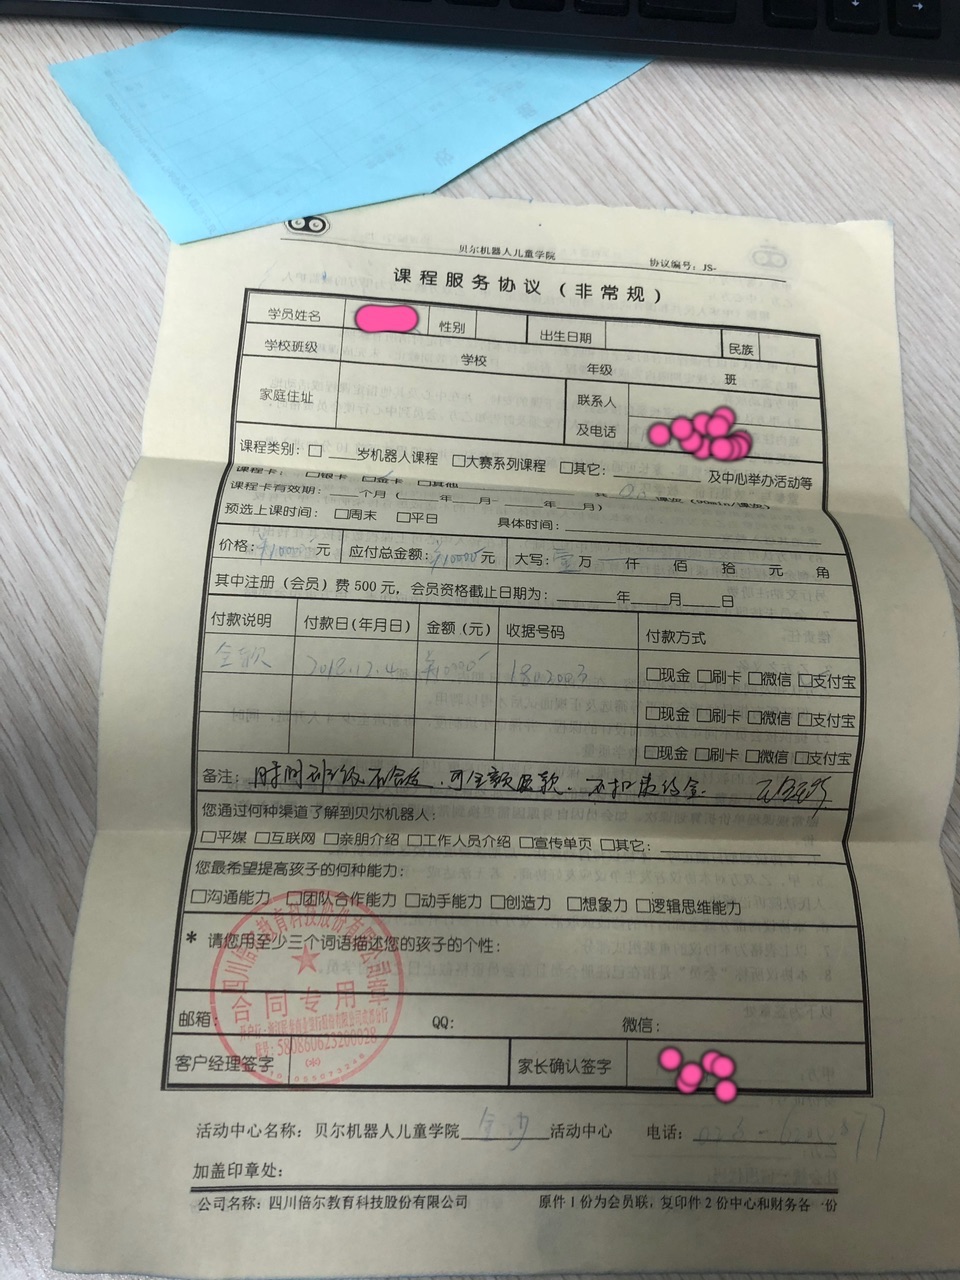 贝尔机器人儿童学院 协议编号：JS-
课程服务协议（非常规）
学员姓名 性别 出生日期 民族
学校班级 学校 年级 班
家庭住址 联系人
及电话
课程类别：□____岁机器人课程 □大赛系列课程 □其它：________及中心举办活动等
课程卡： □银卡 □金卡 □其他
课程卡有效期：____个月（____年____月-____年____月）
预选上课时间： □周末 □平日 具体时间：________
价格：¥10000元 应付总金额：¥10000元 大写：壹万 仟 佰 拾 元 角
其中注册（会员）费500元，会员资格截止日期为：____年____月____日
付款说明 付款日(年月日) 金额（元） 收据号码 付款方式
全款 2018.12.4 ¥10000 □现金 □刷卡 □微信 □支付宝
□现金 □刷卡 □微信 □支付宝
□现金 □刷卡 □微信 □支付宝
备注：时间班级不合适，可全额退款，不扣违约金.
您通过何种渠道了解到贝尔机器人：
□平媒 □互联网 □亲朋介绍 □工作人员介绍 □宣传单页 □其它：________
您最希望提高孩子的何种能力：
□沟通能力 □团队合作能力 □动手能力 □创造力 □想象力 □逻辑思维能力
* 请您用至少三个词语描述您的孩子的个性：
四川倍尔教育科技股份有限公司
合同专用章
邮箱： QQ： 微信：
580860623200028
客户经理签字 家长确认签字
活动中心名称：贝尔机器人儿童学院金沙活动中心 电话：
加盖印章处：
公司名称：四川倍尔教育科技股份有限公司 原件1份为会员联，复印件2份中心和财务各一份